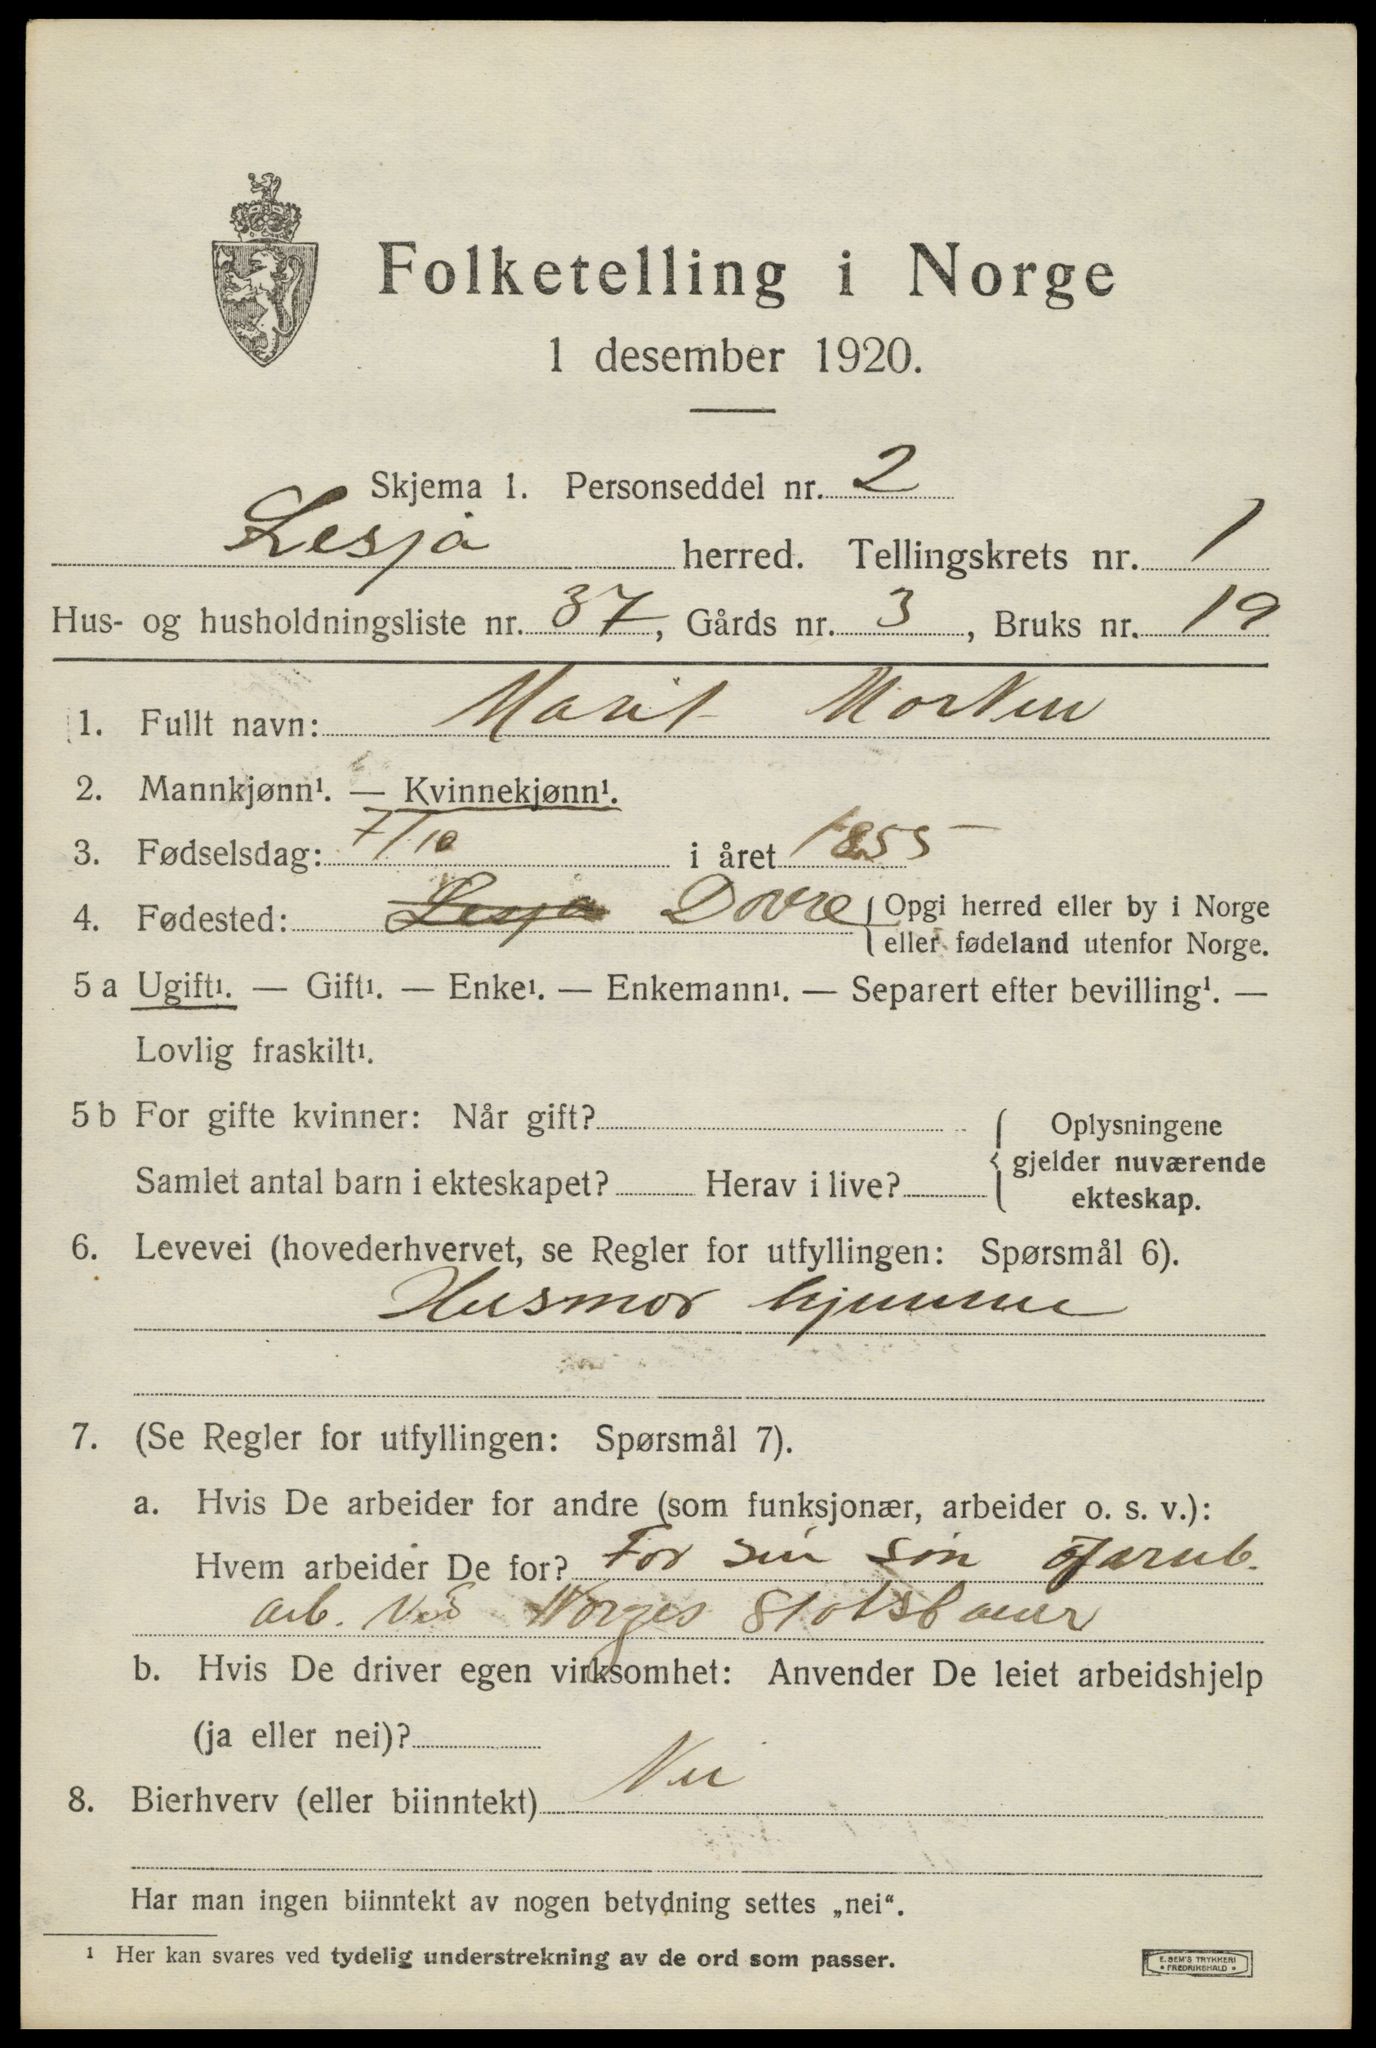 Folketelling i Norge
1 desember 1920.
Skjema 1. Personseddel nr. 2
Lesja herred. Tellingskrets nr. 1
Hus- og husholdningsliste nr. 37, Gårds nr. 3, Bruks nr. 19
1. Fullt navn: Marit Morken
2. Mannkjønn¹. — Kvinnekjønn¹.
3. Fødselsdag: 7/10 i året 1855
4. Fødested: Lesja Dovre { Opgi herred eller by i Norge
eller fødeland utenfor Norge.
5 a Ugift¹. — Gift¹. — Enke¹. — Enkemann¹. — Separert efter bevilling¹. —
Lovlig fraskilt¹.
5 b For gifte kvinner: Når gift?
Samlet antal barn i ekteskapet? Herav i live?
{ Oplysningene
gjelder nuværende
ekteskap.
6. Levevei (hovederhvervet, se Regler for utfyllingen: Spørsmål 6).
Husmor hjemme
7. (Se Regler for utfyllingen: Spørsmål 7).
a. Hvis De arbeider for andre (som funksjonær, arbeider o. s. v.):
Hvem arbeider De for? For sin søn Jarnb.
arb. ved Norges Statsbaner
b. Hvis De driver egen virksomhet: Anvender De leiet arbeidshjelp
(ja eller nei)?
8. Bierhverv (eller biinntekt) Nei
Har man ingen biinntekt av nogen betydning settes „nei“.
¹ Her kan svares ved tydelig understrekning av de ord som passer.
E. SEM'S TRYKKERI
FREDRIKSHALD